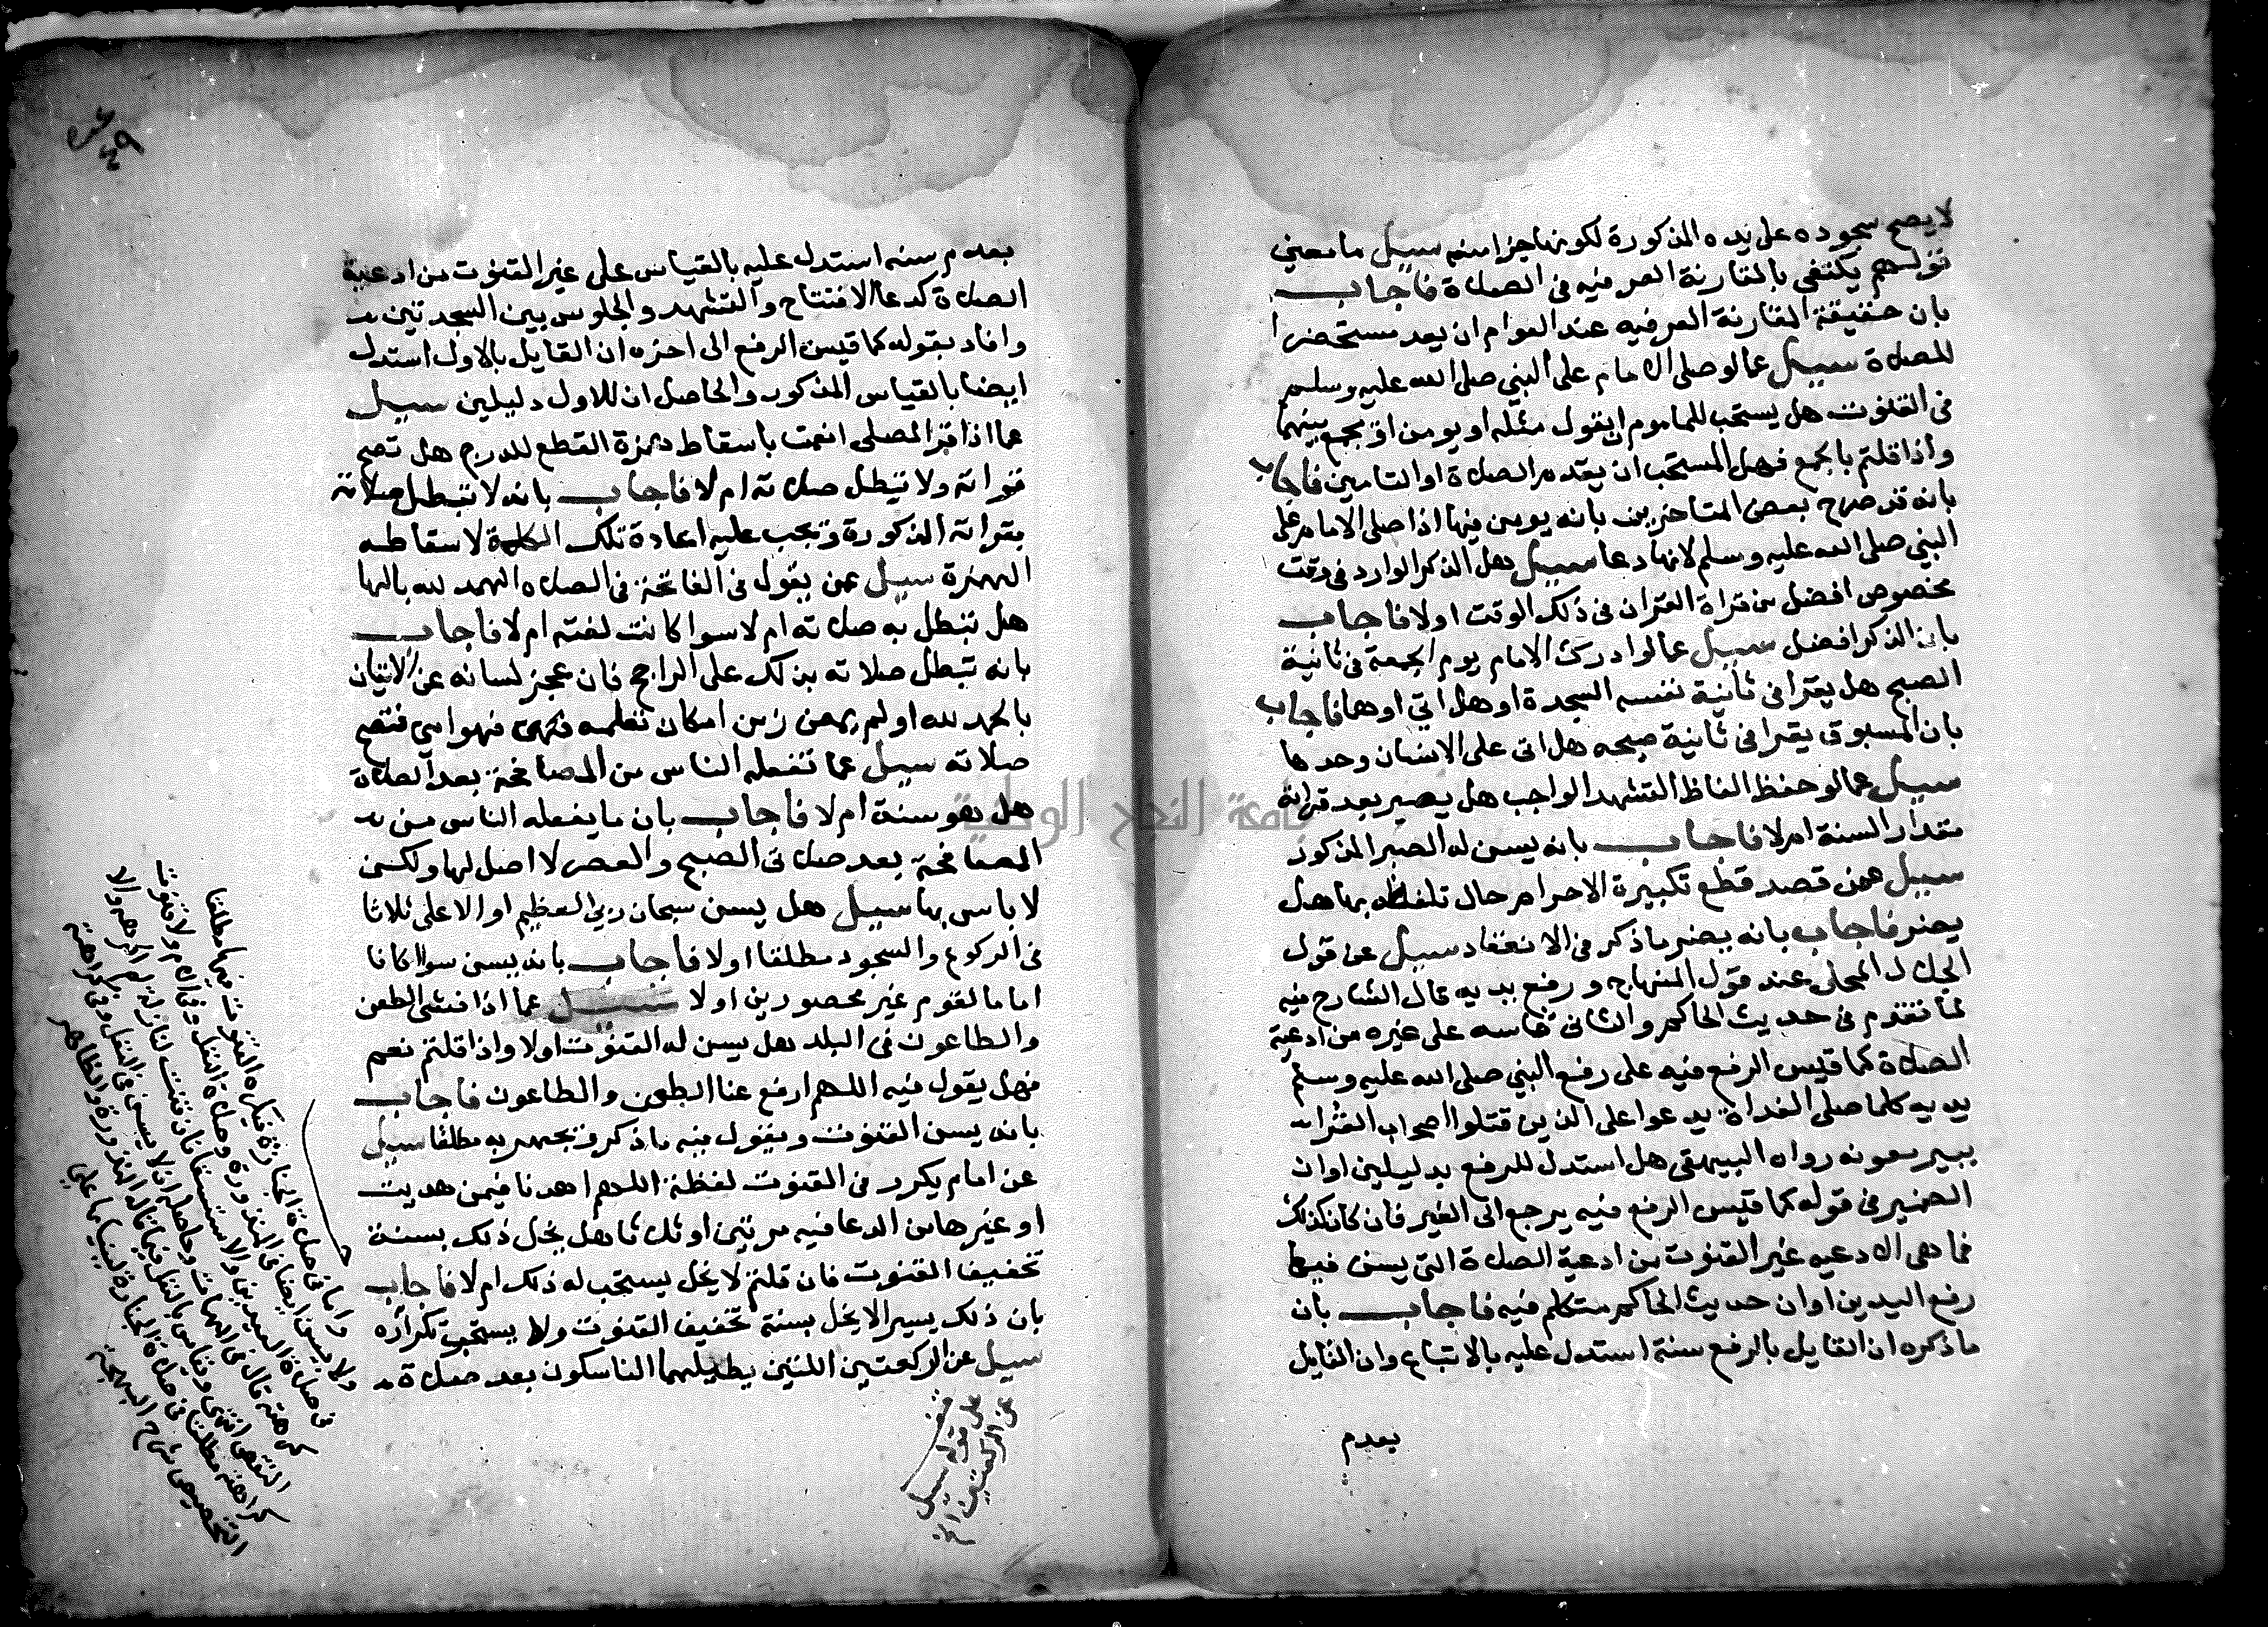 لا يصح سجوده على يده المذكورة لكونها جزا منه سييل ما معنى
قولهم يكتفى بالمقارنة العرفيه فى الصلاة فاجاب
بان حقيقة المقارنة العرفيه عند العوام ان يعد مستحضرا
للصلاة سييل عما لو صلى الامام على النبي صلى الله عليه وسلم
فى القنوت هل يستحب للماموم ان يقول مثله او يومن او يجمع بينهما
واذا قلتم بالجمع فهل المستحب ان يقدم الصلاة او التامين فاجاب
بانه قد صرح بعض المتاخرين بانه يومن فيها اذا صلى الامام على
النبي صلى الله عليه وسلم لانها دعا سييل هل الذكر الوارد فى وقت
مخصوص افضل من قراة القران فى ذلك الوقت او لا فاجاب
بان الذكر افضل سييل عما لو ادرك الامام يوم الجمعة فى ثانية
الصبح هل يقرا فى ثانية نفسه السجدة او هل اتي او هما فاجاب
بان المسبوق يقرا فى ثانية صبحه هل اتى على الانسان وحدها
سييل عما لو حفظ الفاظ التشهد الواجب هل يصير بعد قراته
مقدار السنة ام لا فاجاب بانه يسن له الصبر المذكور
سييل عمن قصد قطع تكبيرة الاحرام حال تلفظه بها هل
يضر فاجاب بانه يضر ما ذكر فى الانعقاد سييل عن قول
الجلال المحلى عند قول المنهاج و رفع يديه قال الشارح فيه
لما تقدم فى حديث الحاكم والثانى قاسه على غيره من ادعية
الصلاة كما قيس الرفع فيه على رفع النبي صلى الله عليه وسلم
يديه كلما صلى الغداة يدعوا على الذين قتلوا اصحاب القرا
ببير معونه رواه البيهقى هل استدل للرفع بدليلين او ان
الضمير فى قوله كما قيس الرفع فيه يرجع الى الغير فان كان كذلك
فما هى الادعيه غير القنوت من ادعية الصلاة التي يسن فيها
رفع اليدين او ان حديث الحاكم متكلم فيه فاجاب بان
ما ذكره ان القايل بالرفع سنة استدل عليه بالاتباع وان القايل
بعدم
عده
٤٩
بعدم سنه استدل عليه بالقياس على غير القنوت من ادعية
الصلاة كدعا الافتتاح والتشهد والجلوس بين السجدتين
وافاد بقوله كما قيس الرفع الى اخره ان القايل بالاول استدل
ايضا بالقياس المذكور والحاصل ان للاول دليلين سييل
عما اذا قرا المصلى انعمت باسقاط همزة القطع للدرج هل تصح
قراته ولا تبطل صلاته ام لا فاجاب بانه لا تبطل صلاته
بقراته المذكورة وتجب عليه اعادة تلك الكلمة لاسقاطه
الهمزة سييل عمن يقول فى الفاتحة فى الصلاه الهمد لله بالها
هل تبطل به صلاته ام لا سوا كانت لغته ام لا فاجاب
بانه تبطل صلاته بذلك على الراجح فان عجز لسانه عن الاتيان
بالحمد لله او لم يمض زمن امكان تعلمه فهو امى فتصح
صلاته سييل عما تفعله الناس من المصافحة بعد الصلاة
هل هو سنة ام لا فاجاب بان ما يفعله الناس من
المصافحة بعد صلاتى الصبح والعصر لا اصل لها ولكن
لا باس بها سييل هل يسن سبحان ربي العظيم او الاعلى ثلاثا
فى الركوع والسجود مطلقا او لا فاجاب بانه يسن سوا كانا
اماما لقوم غير محصورين او لا سييل عما اذا فشى الطعن
والطاعون فى البلد هل يسن له القنوت او لا واذا قلتم نعم
فهل يقول فيه اللهم ارفع عنا الطعن والطاعون فاجاب
بانه يسن القنوت ويقول فيه ما ذكر ويجهر به مطلقا سييل
عن امام يكرر فى القنوت لفظة اللهم اهدنا فيمن هديت
او غيرها من الدعا فيه مرتين او ثلاثا هل يخل ذلك بسنة
تخفيف القنوت فان قلتم لا يخل يستحب له ذلك ام لا فاجاب
بان ذلك يسير لا يخل بسنة تخفيف القنوت ولا يستحب تكراره
سييل عن الركعتين اللتين يطيلهما الناسكون بعد صلاة
على قوله سييل
عن الركعتين الخ
واما فى صلاة الجنازة فيكره القنوت فيها مطلقا
جامعة النجاح الوطنية